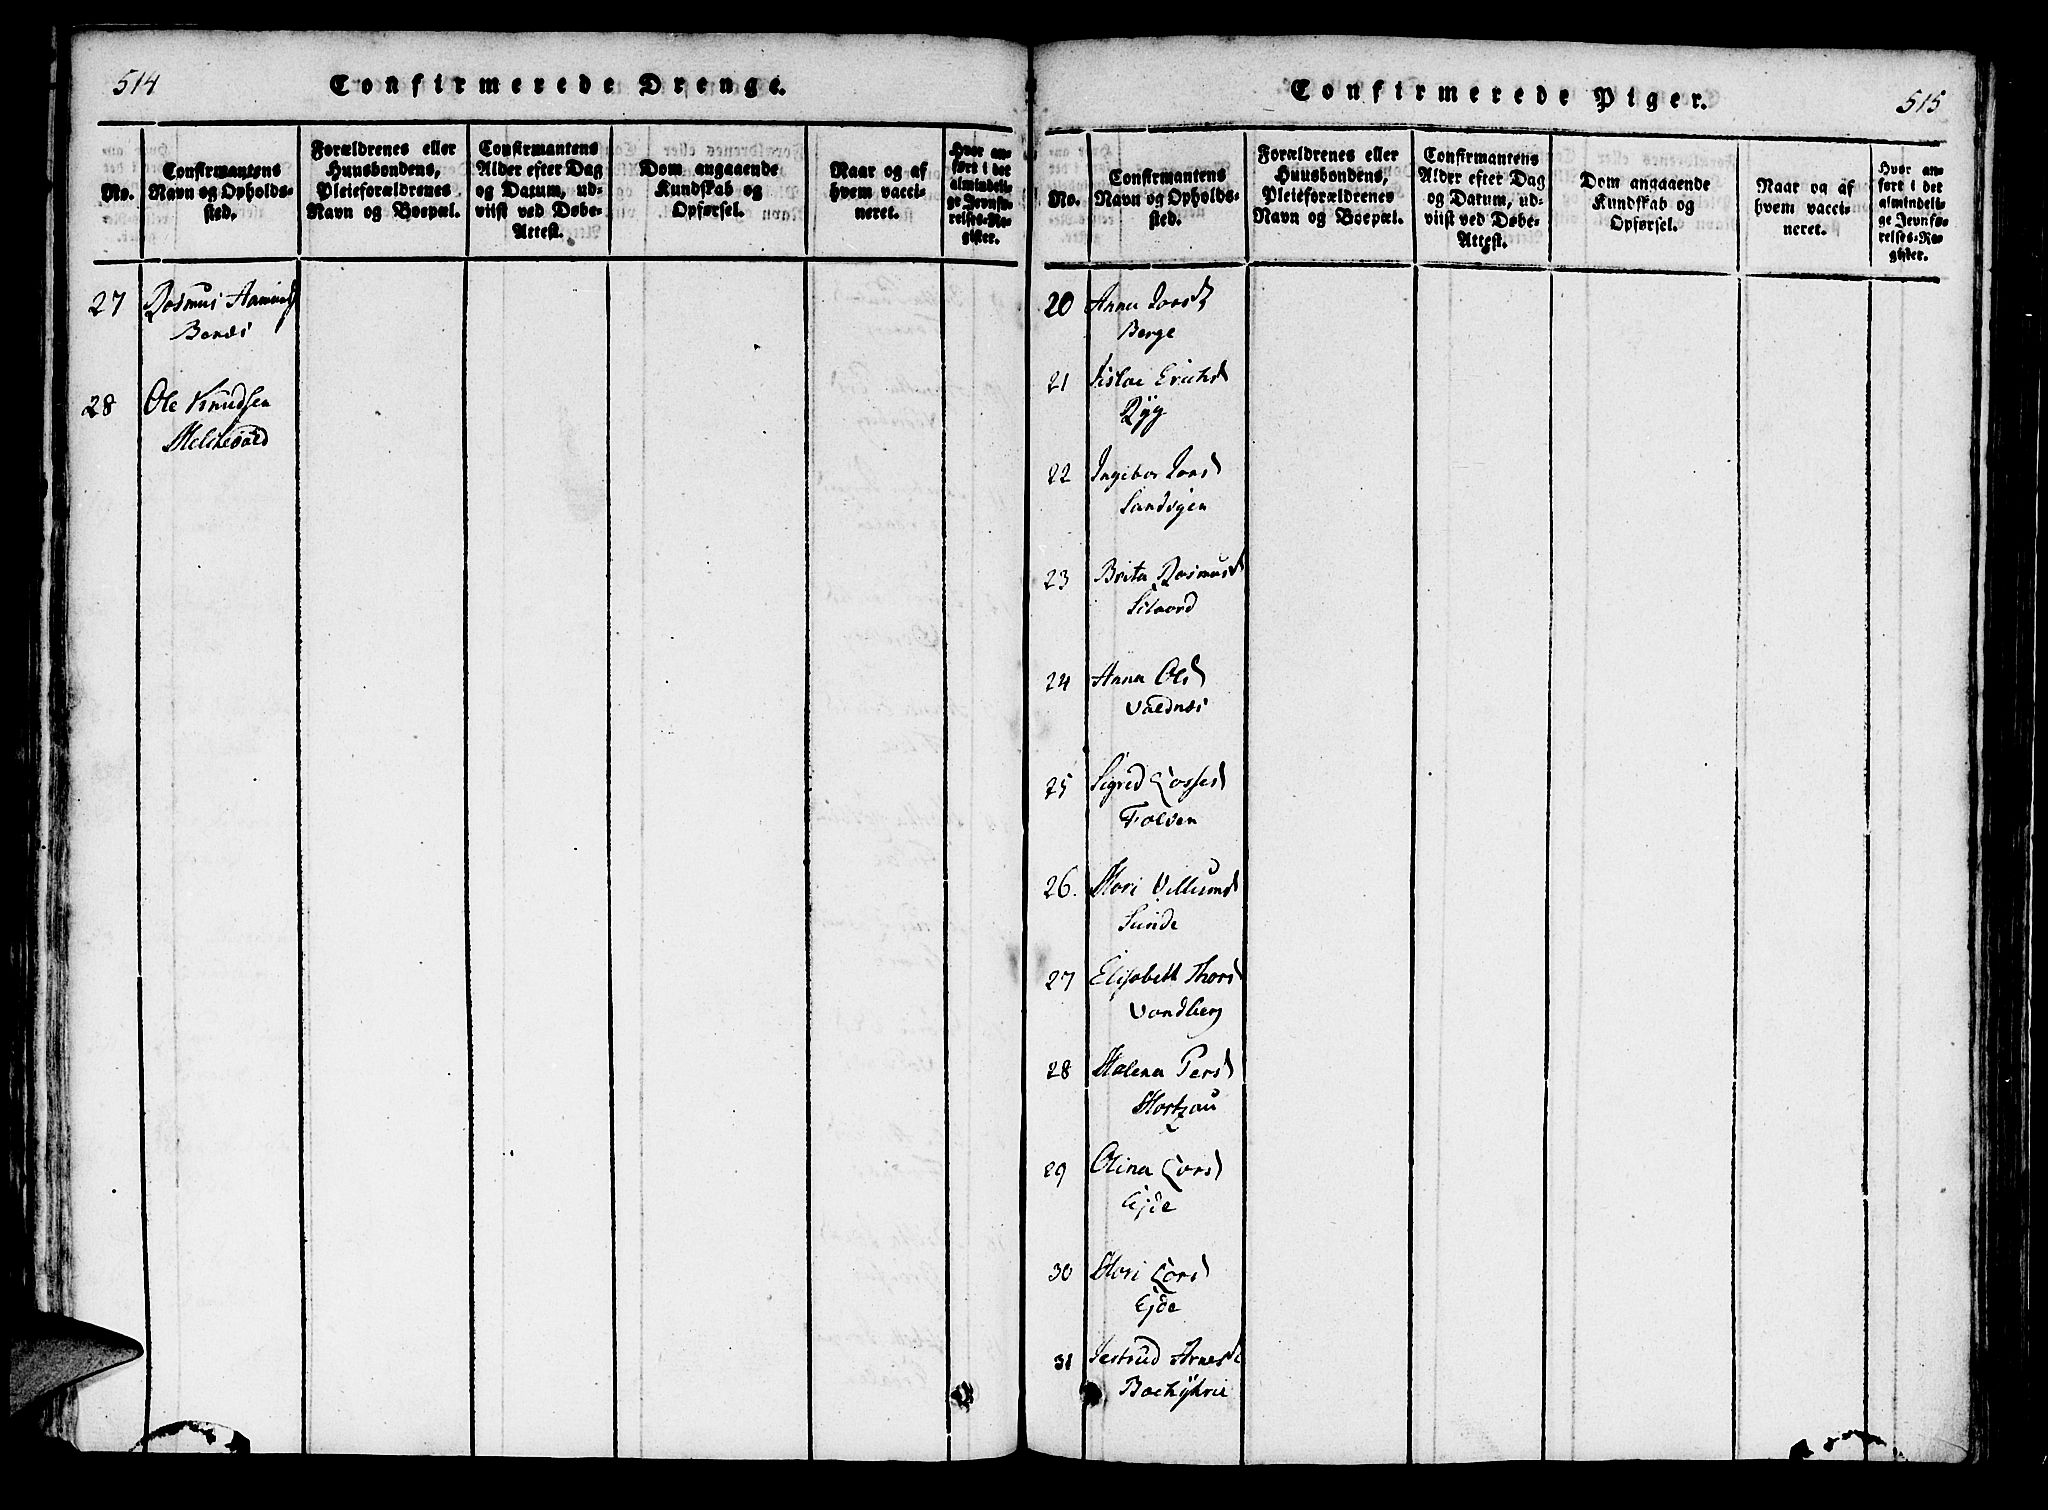 514
Confirmerede Drenge.
No.
Confirmantens
Navn og Opholds-
sted.
Forældrenes eller
Huusbondens,
Pleieforældrenes
Navn og Boepæl.
Confirmantens
Alder efter Dag
og Datum, ud-
viist ved Døbe-
Attest.
Dom angaaende
Kundskab og
Opførsel.
Naar og af
hvem vacci-
neret.
Hvor an-
ført i det
almindeli-
ge Jevnfø-
relses-Re-
gister.
27 Rasmus
Bønæs
28 Ole Knudsen
Melchevold
Confirmerede Piger.
515
No.
Confirmantens
Navn og Opholds-
sted.
Forældrenes eller
Huusbondens,
Pleieforældrenes
Navn og Boepæl.
Confirmantens
Alder efter Dag
og Datum, ud-
viist ved Døbe-
Attest.
Dom angaaende
Kundskab og
Opførsel.
Naar og af
hvem vacci-
neret.
Hvor an-
ført i det
almindeli-
ge Jevnfø-
relses-Re-
gister.
20 Anna Jonsd
Berge
21 Erichsd
Ryg
22 Ingebor Jonsd
Sandvigen
23 Brita Rasmusd
24 Anna Olsd
Valdnæs
25 Sigrid Lassesd
Folven
26. Mari Villumsd
Sunde
27 Elisabeth Thorsd
Vandberg
28 Malena Persd
29 Olina Larsd
Ejde
30 Mari Larsd
Ejde
31 Jertrud Arnesd